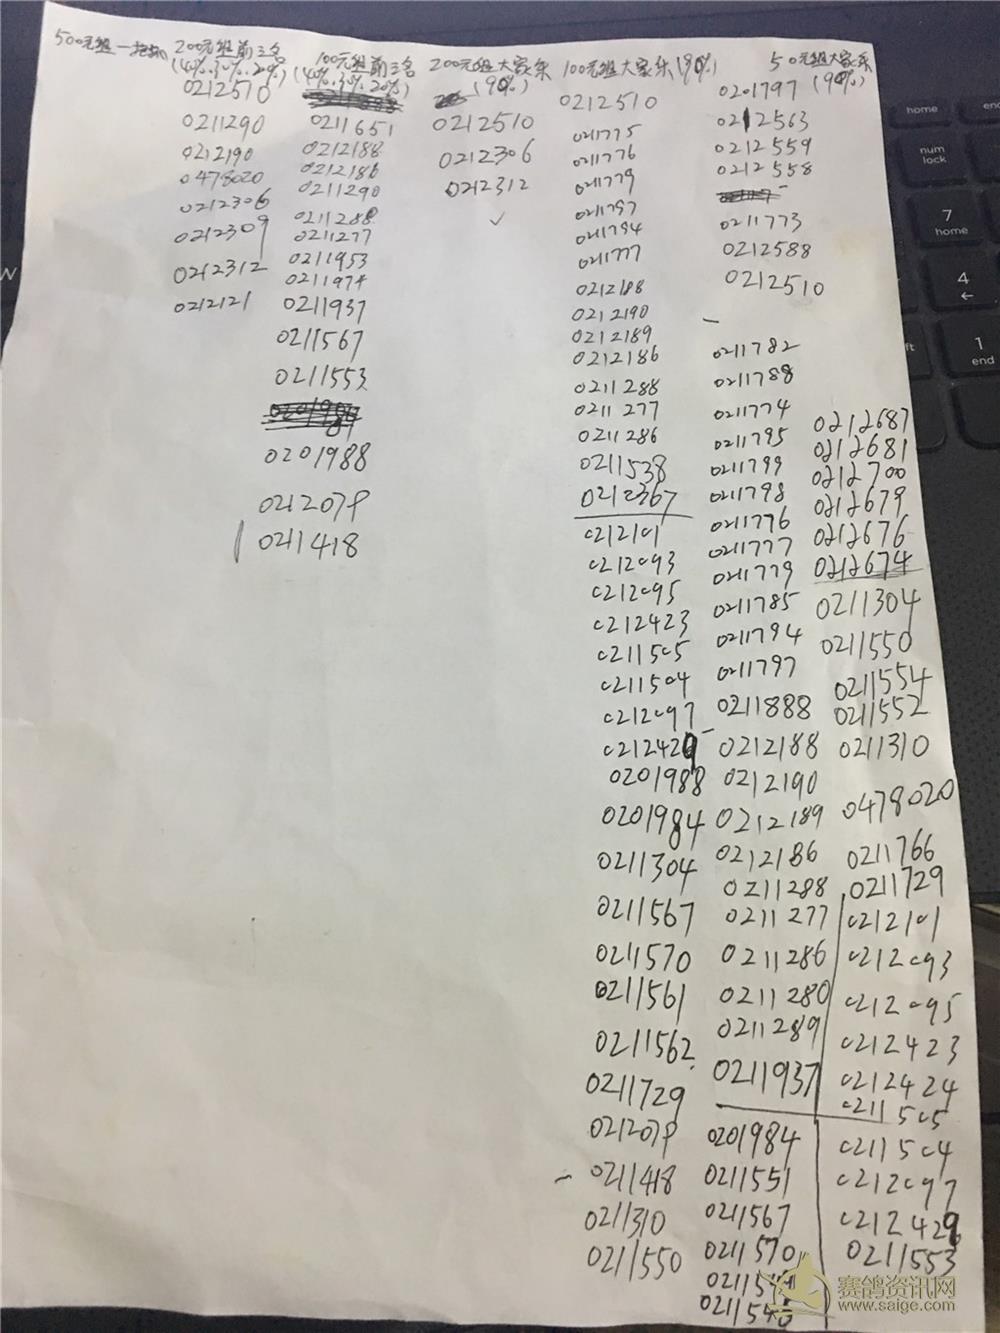 500元组一把抓
200元组前三名
(40%.30%.20%)
0212510
0211290
0212190
0478020
0212306
0212309
0212312
0212121
100元组前三名
(40%.30%.20%)
0211651
0212188
0212186
0211290
0211288
0211277
0211953
0211974
0211937
0211567
0211553
0201988
0212079
0211418
200元组大家乐
(90%)
0212510
0212306
0212312
100元组大家乐(90%)
0212510
0211775
0211776
0211779
0211797
0211794
0211777
0212188
0212190
0212189
0212186
0211288
0211277
0211286
0211538
0212367
0212101
0212093
0212095
0212423
0211505
0211504
0212097
0212429
0201988
0201984
0211304
0211567
0211570
0211561
0211562
0211729
0212079
0211418
0211310
0211550
50元组大家乐
(90%)
0201797
0212563
0212559
0212558
0211773
0212588
0212510
0211782
0211788
0211774
0211795
0211799
0211798
0211776
0211777
0211779
0211785
0211794
0211797
0211888
0212188
0212190
0212189
0212186
0211288
0211277
0211286
0211280
0211289
0211937
0201984
0211551
0211567
0211570
0212687
0212681
0212700
0212679
0212676
0212674
0211304
0211550
0211554
0211552
0211310
0478020
0211766
0211729
0212101
0212093
0212095
0212423
0212424
0211505
0211504
0212097
0212429
0211553
home
end
num
lock
7
home
4
←
1
end
赛鸽资讯网
www.saige.com